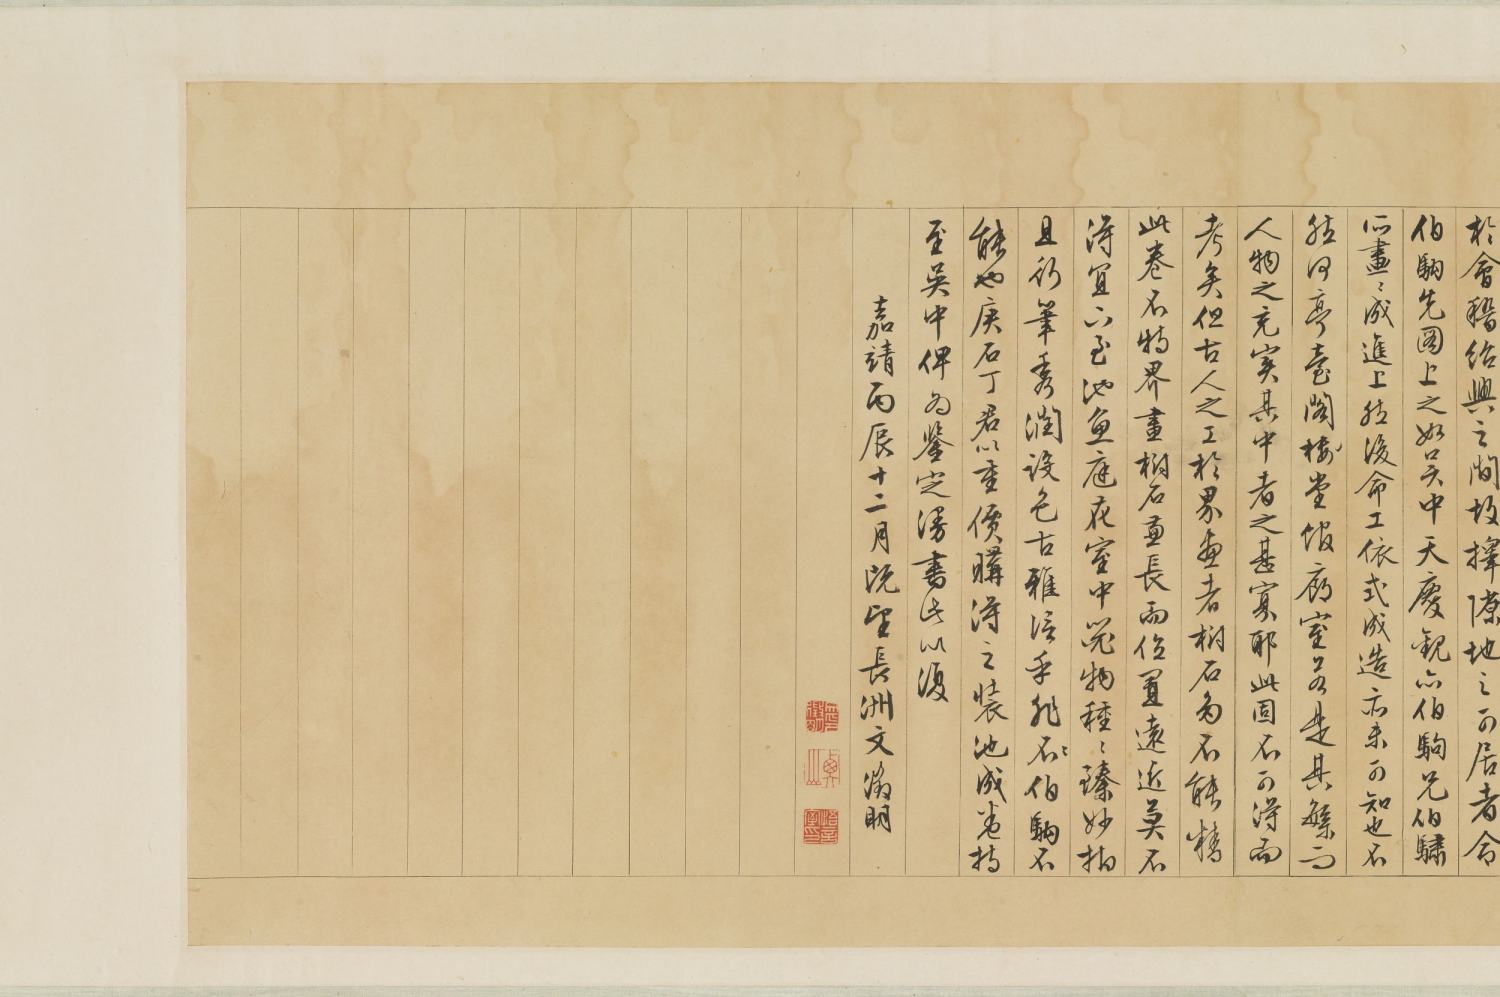 於會稽紹興之間故擇隙地之可居者命
伯駒先圖上之如吳中天慶觀亦伯駒兄伯驌
所畫畫成進上然後命工依式成造亦未可知也不
然何亭臺閣樓堂館廊室若是其繁而
人物之充實其中者之甚寡耶此固不可得而
考矣但古人之工於界畫者樹石多不能精
此卷不特界畫樹石兼長而位置遠近莫不
得宜以至池魚庭花室中器物種種臻妙抑
且行筆秀潤設色古雅信乎非伯駒不
能也庚石丁君以重價購得之裝池成卷持
至吳中俾為鑒定漫書此以復
嘉靖丙辰十二月既望長洲文徵明